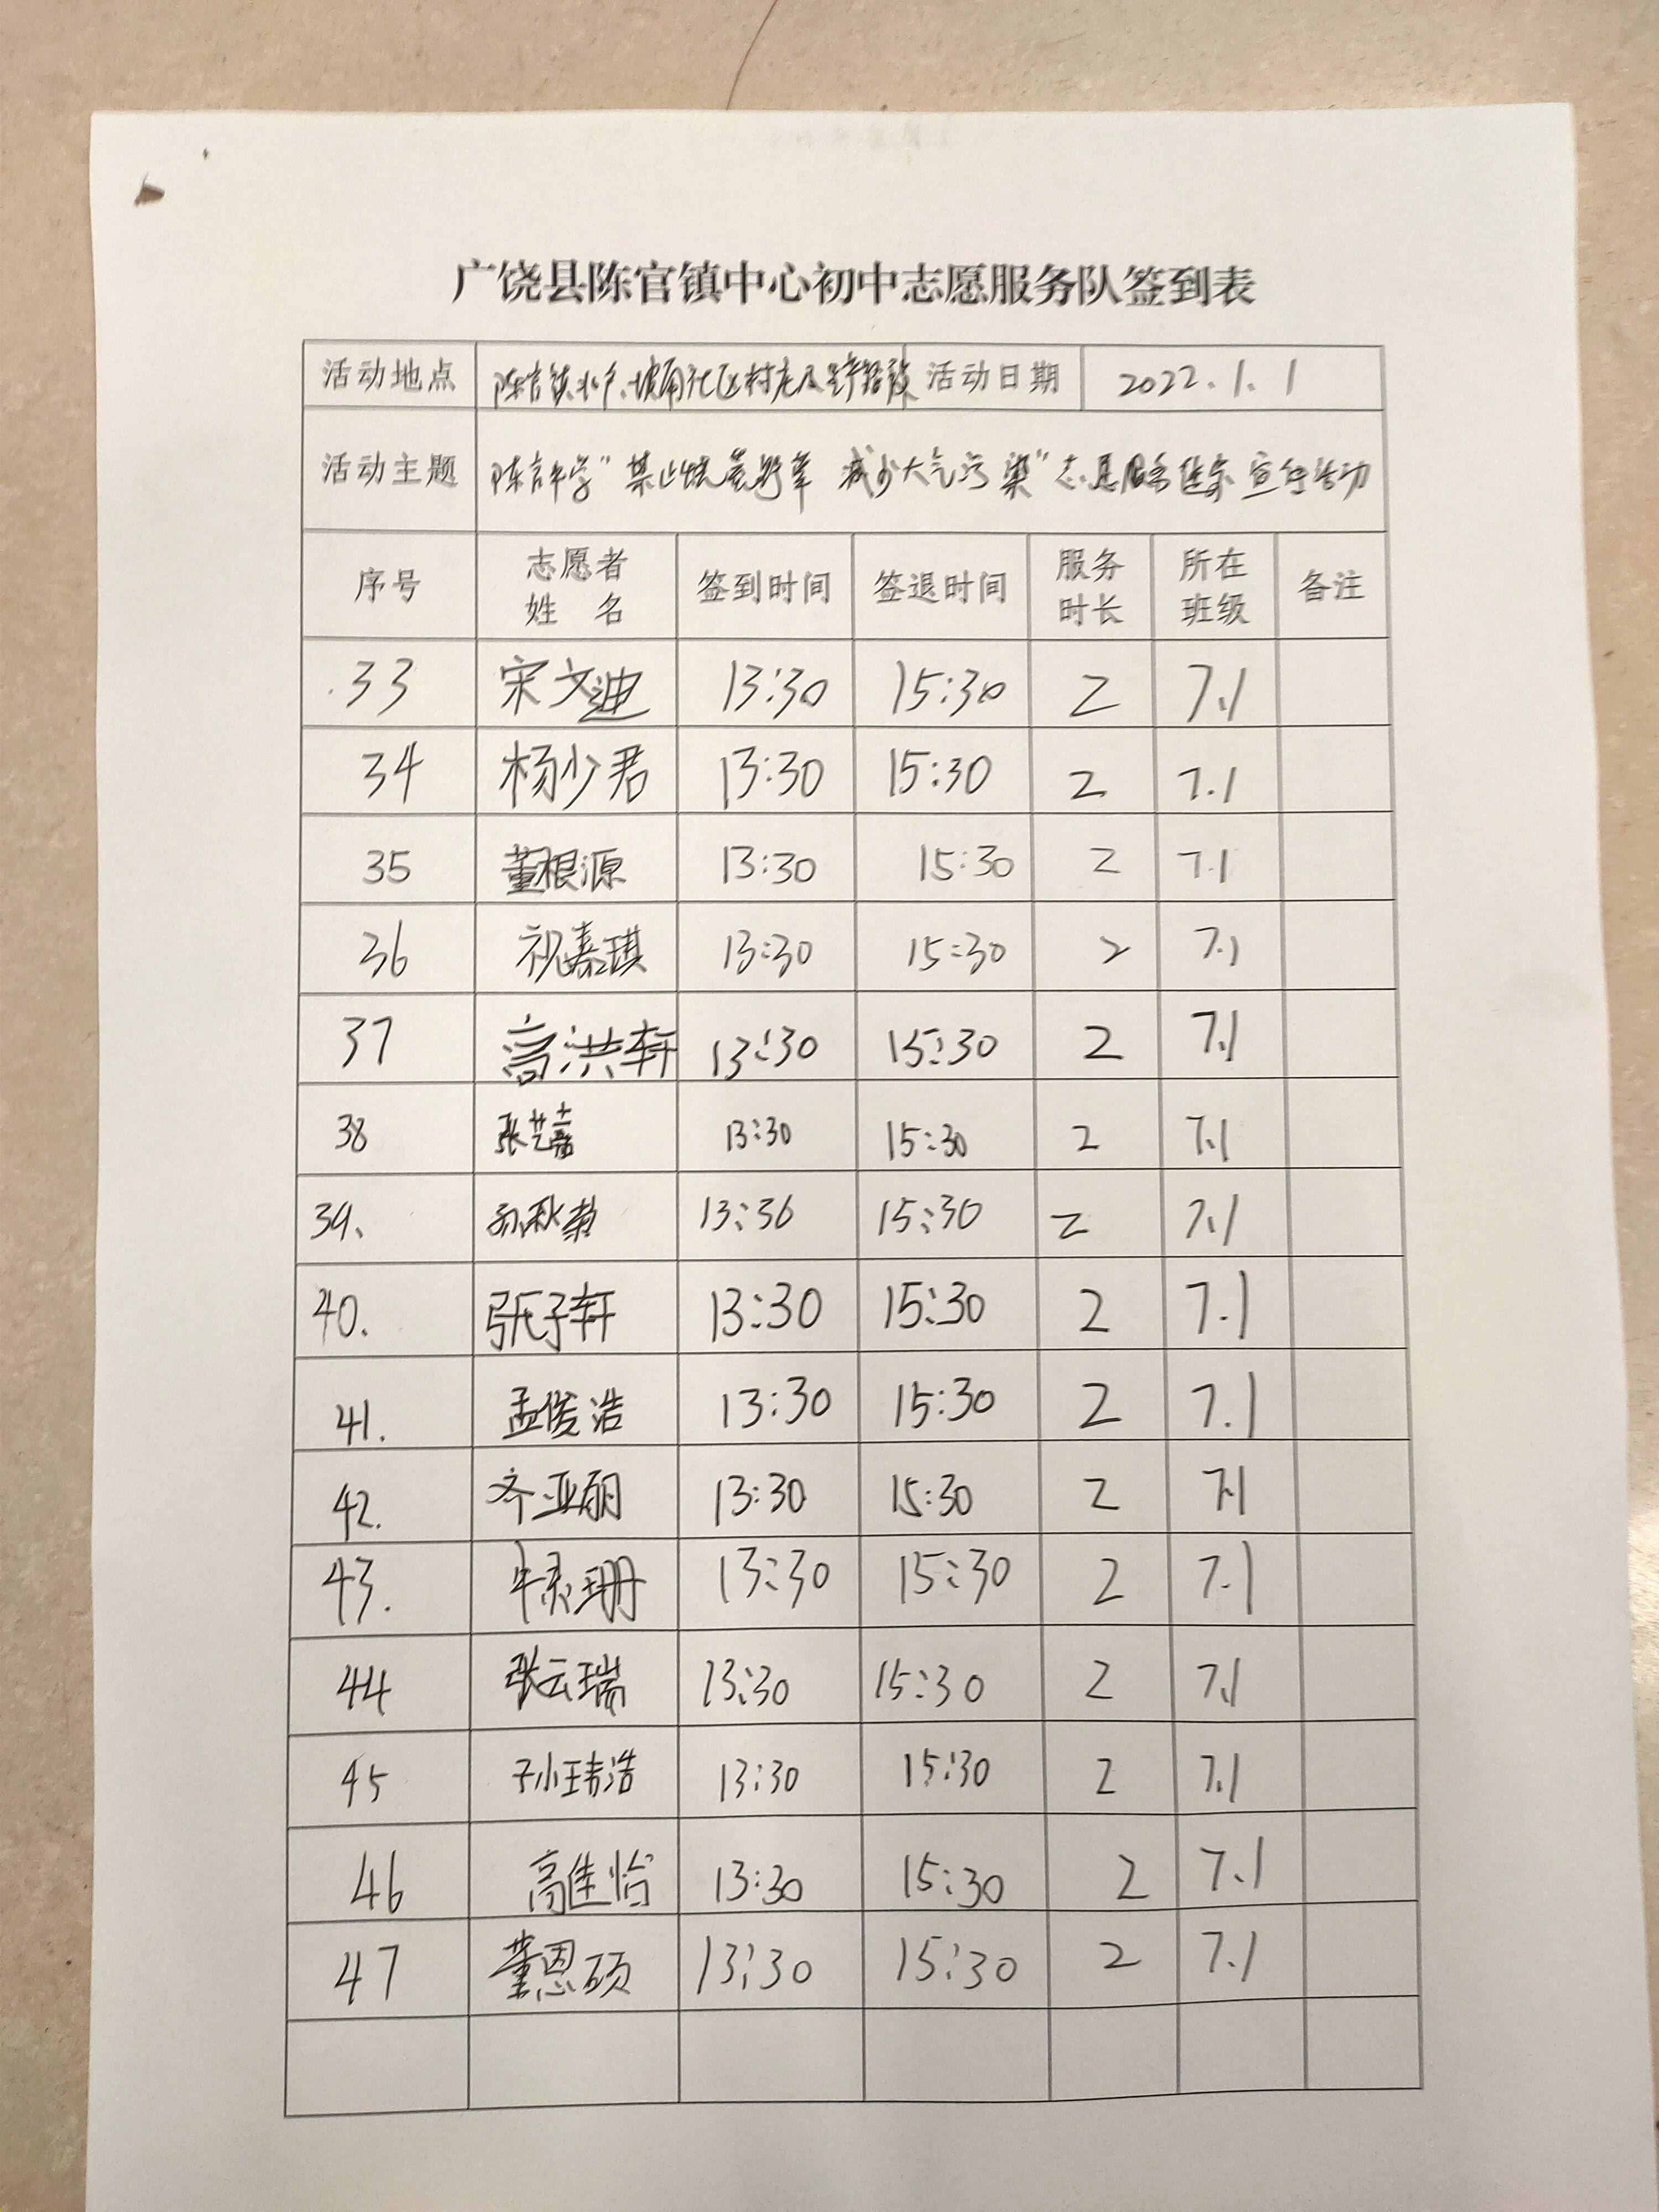 广饶县陈官镇中心初中志愿服务队签到表
活动地点 陈官镇 坡南社区村庄及 路段 活动日期 2022.1.1
活动主题 陈官中学"禁止烧荒野草 减少大气污染"志愿服务 宣传活动
序号 志愿者姓名 签到时间 签退时间 服务时长 所在班级 备注
33 宋文迪 13:30 15:30 2 7.1
34 杨少君 13:30 15:30 2 7.1
35 董根源 13:30 15:30 2 7.1
36 祝嘉琪 13:30 15:30 2 7.1
37 高洪轩 13:30 15:30 2 7.1
38 张艺嘉 13:30 15:30 2 7.1
39、 孙秋菊 13:30 15:30 2 7.1
40. 张子轩 13:30 15:30 2 7.1
41. 孟俊浩 13:30 15:30 2 7.1
42. 齐亚丽 13:30 15:30 2 7.1
43. 牛灵珊 13:30 15:30 2 7.1
44 张云瑞 13:30 15:30 2 7.1
45 孙玮浩 13:30 15:30 2 7.1
46 高佳怡 13:30 15:30 2 7.1
47 董恩硕 13:30 15:30 2 7.1